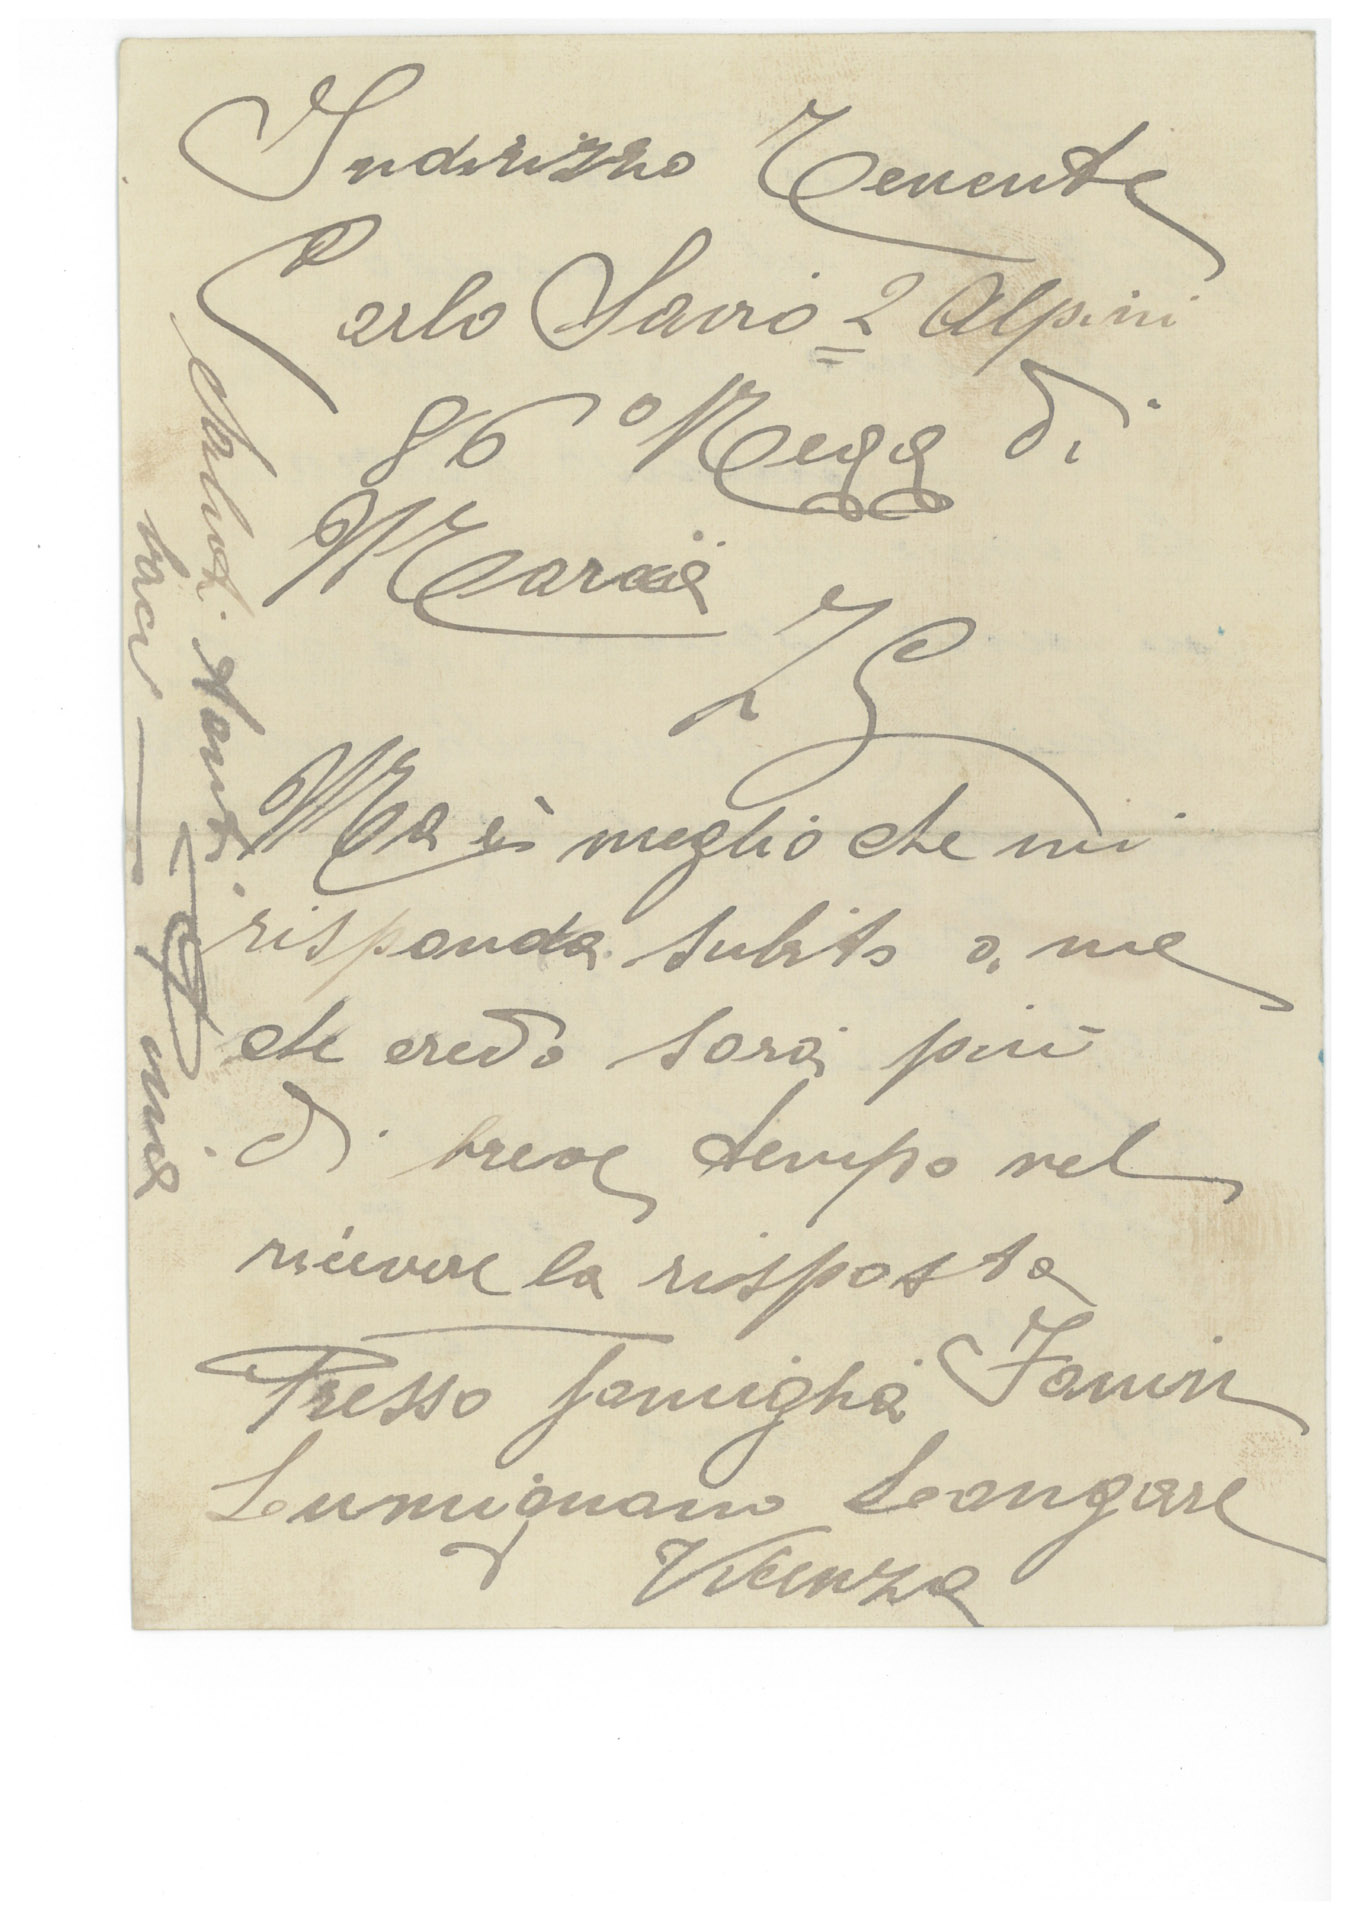 Indirizzo Tenente
Carlo Sauro 2 Alpini
86° Regg di
Marcia
Z G
Ma è meglio che mi
risponda subito a me
che credo sarà più
di breve tempo nel
ricevere la risposta
Presso famiglia Fanin
Lumignano Longare
Vicenza
Saluti tanti
baci